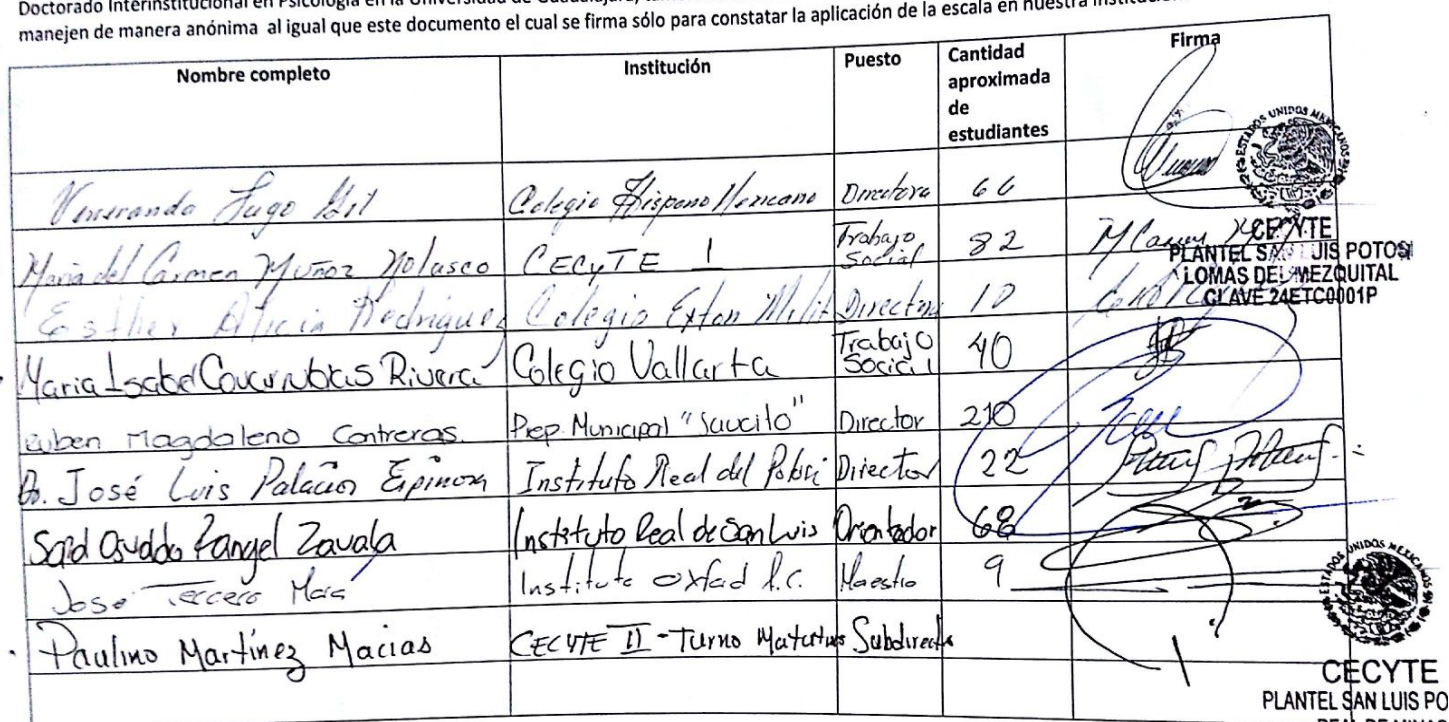 Doctorado Interinstitucional en Psicología en la Universidad de Guadalajara,
manejen de manera anónima al igual que este documento el cual se firma sólo para constatar la aplicación de la escala en nuestra
Nombre completo Institución Puesto Cantidad aproximada de estudiantes Firma
Veneranda Lugo Gil Colegio Hispano Mexicano Directora 66
María del Carmen Muñoz Nolasco CECyTE I Trabajo Social 82
Esther Alicia Rodriguez Colegio Directora 10
Maria Isabel Covarrubias Rivera Colegio Vallarta Trabajo Social 40
Ruben Magdaleno Contreras. Prep. Municipal "Saucito" Director 210
José Luis Palacios Espinoza Instituto Real del Potosi Director 22
Said Osvaldo Rangel Zavala Instituto Real de San Luis Orientador 68
Jose Tercero Instituto Oxford A.C. Maestro 9
Paulino Martínez Macias CECYTE II - Turno Matutino Subdirector
ESTADOS UNIDOS MEXICANOS
CECYTE
PLANTEL SAN LUIS POTOSI
LOMAS DEL MEZQUITAL
CLAVE 24ETC0001P
ESTADOS UNIDOS MEXICANOS
CECYTE
PLANTEL SAN LUIS PO